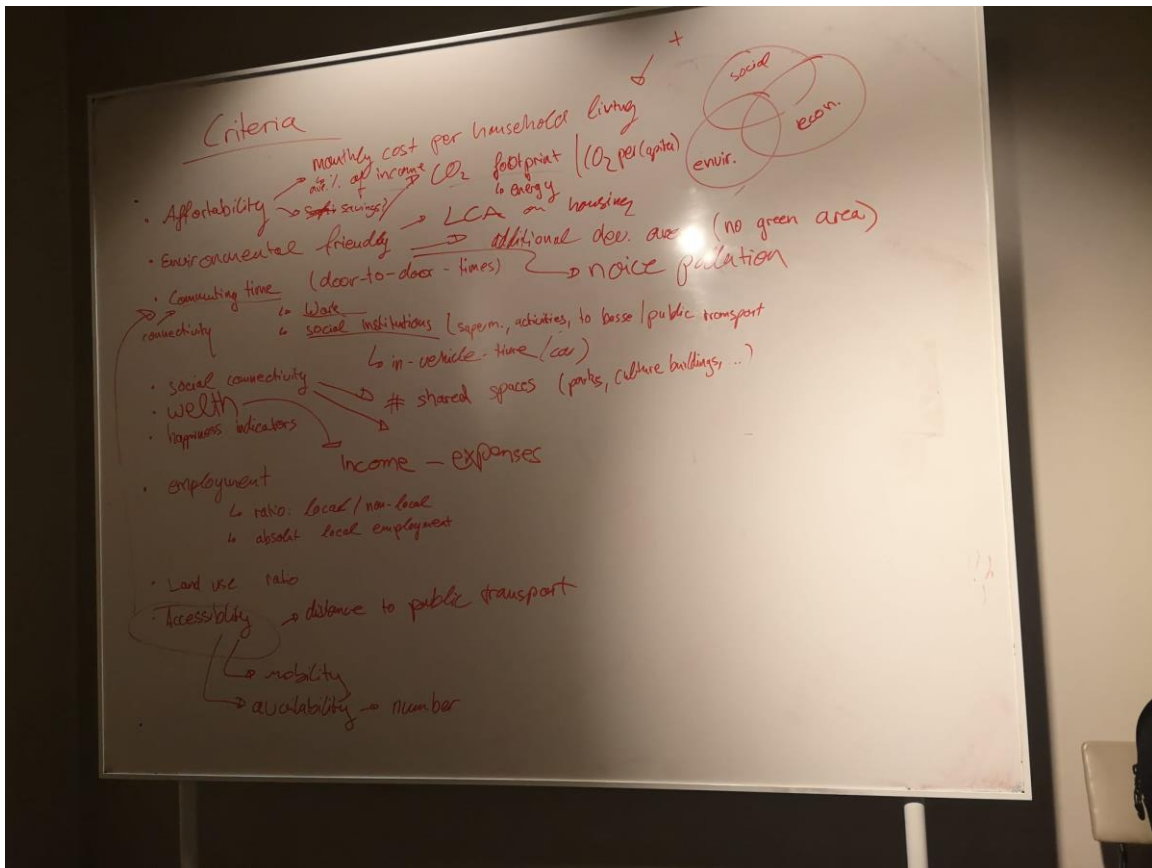 Criteria
+
social
econ.
envir.
monthly cost per household living
• Affortability
% of income
+
savings?
CO2 footprint (CO2 per Capita)
↳ energy
• Environmental friendly → LCA on housing
additional dev. area (no green area)
noice pollution
• Commuting time (door-to-door-times)
connectivity
↳ Work
↳ social institutions (superm., activities, to busse/public transport
↳ in-vehicle-time/car)
• social connectivity
# shared spaces (parks, culture buildings, ...)
• Welth
• happiness indicators
Income – expenses
• employment
↳ ratio: local / non-local
↳ absolut local employment
• Land use ratio
• Accessiblity → distance to public transport
→ mobility
→ avalability → number